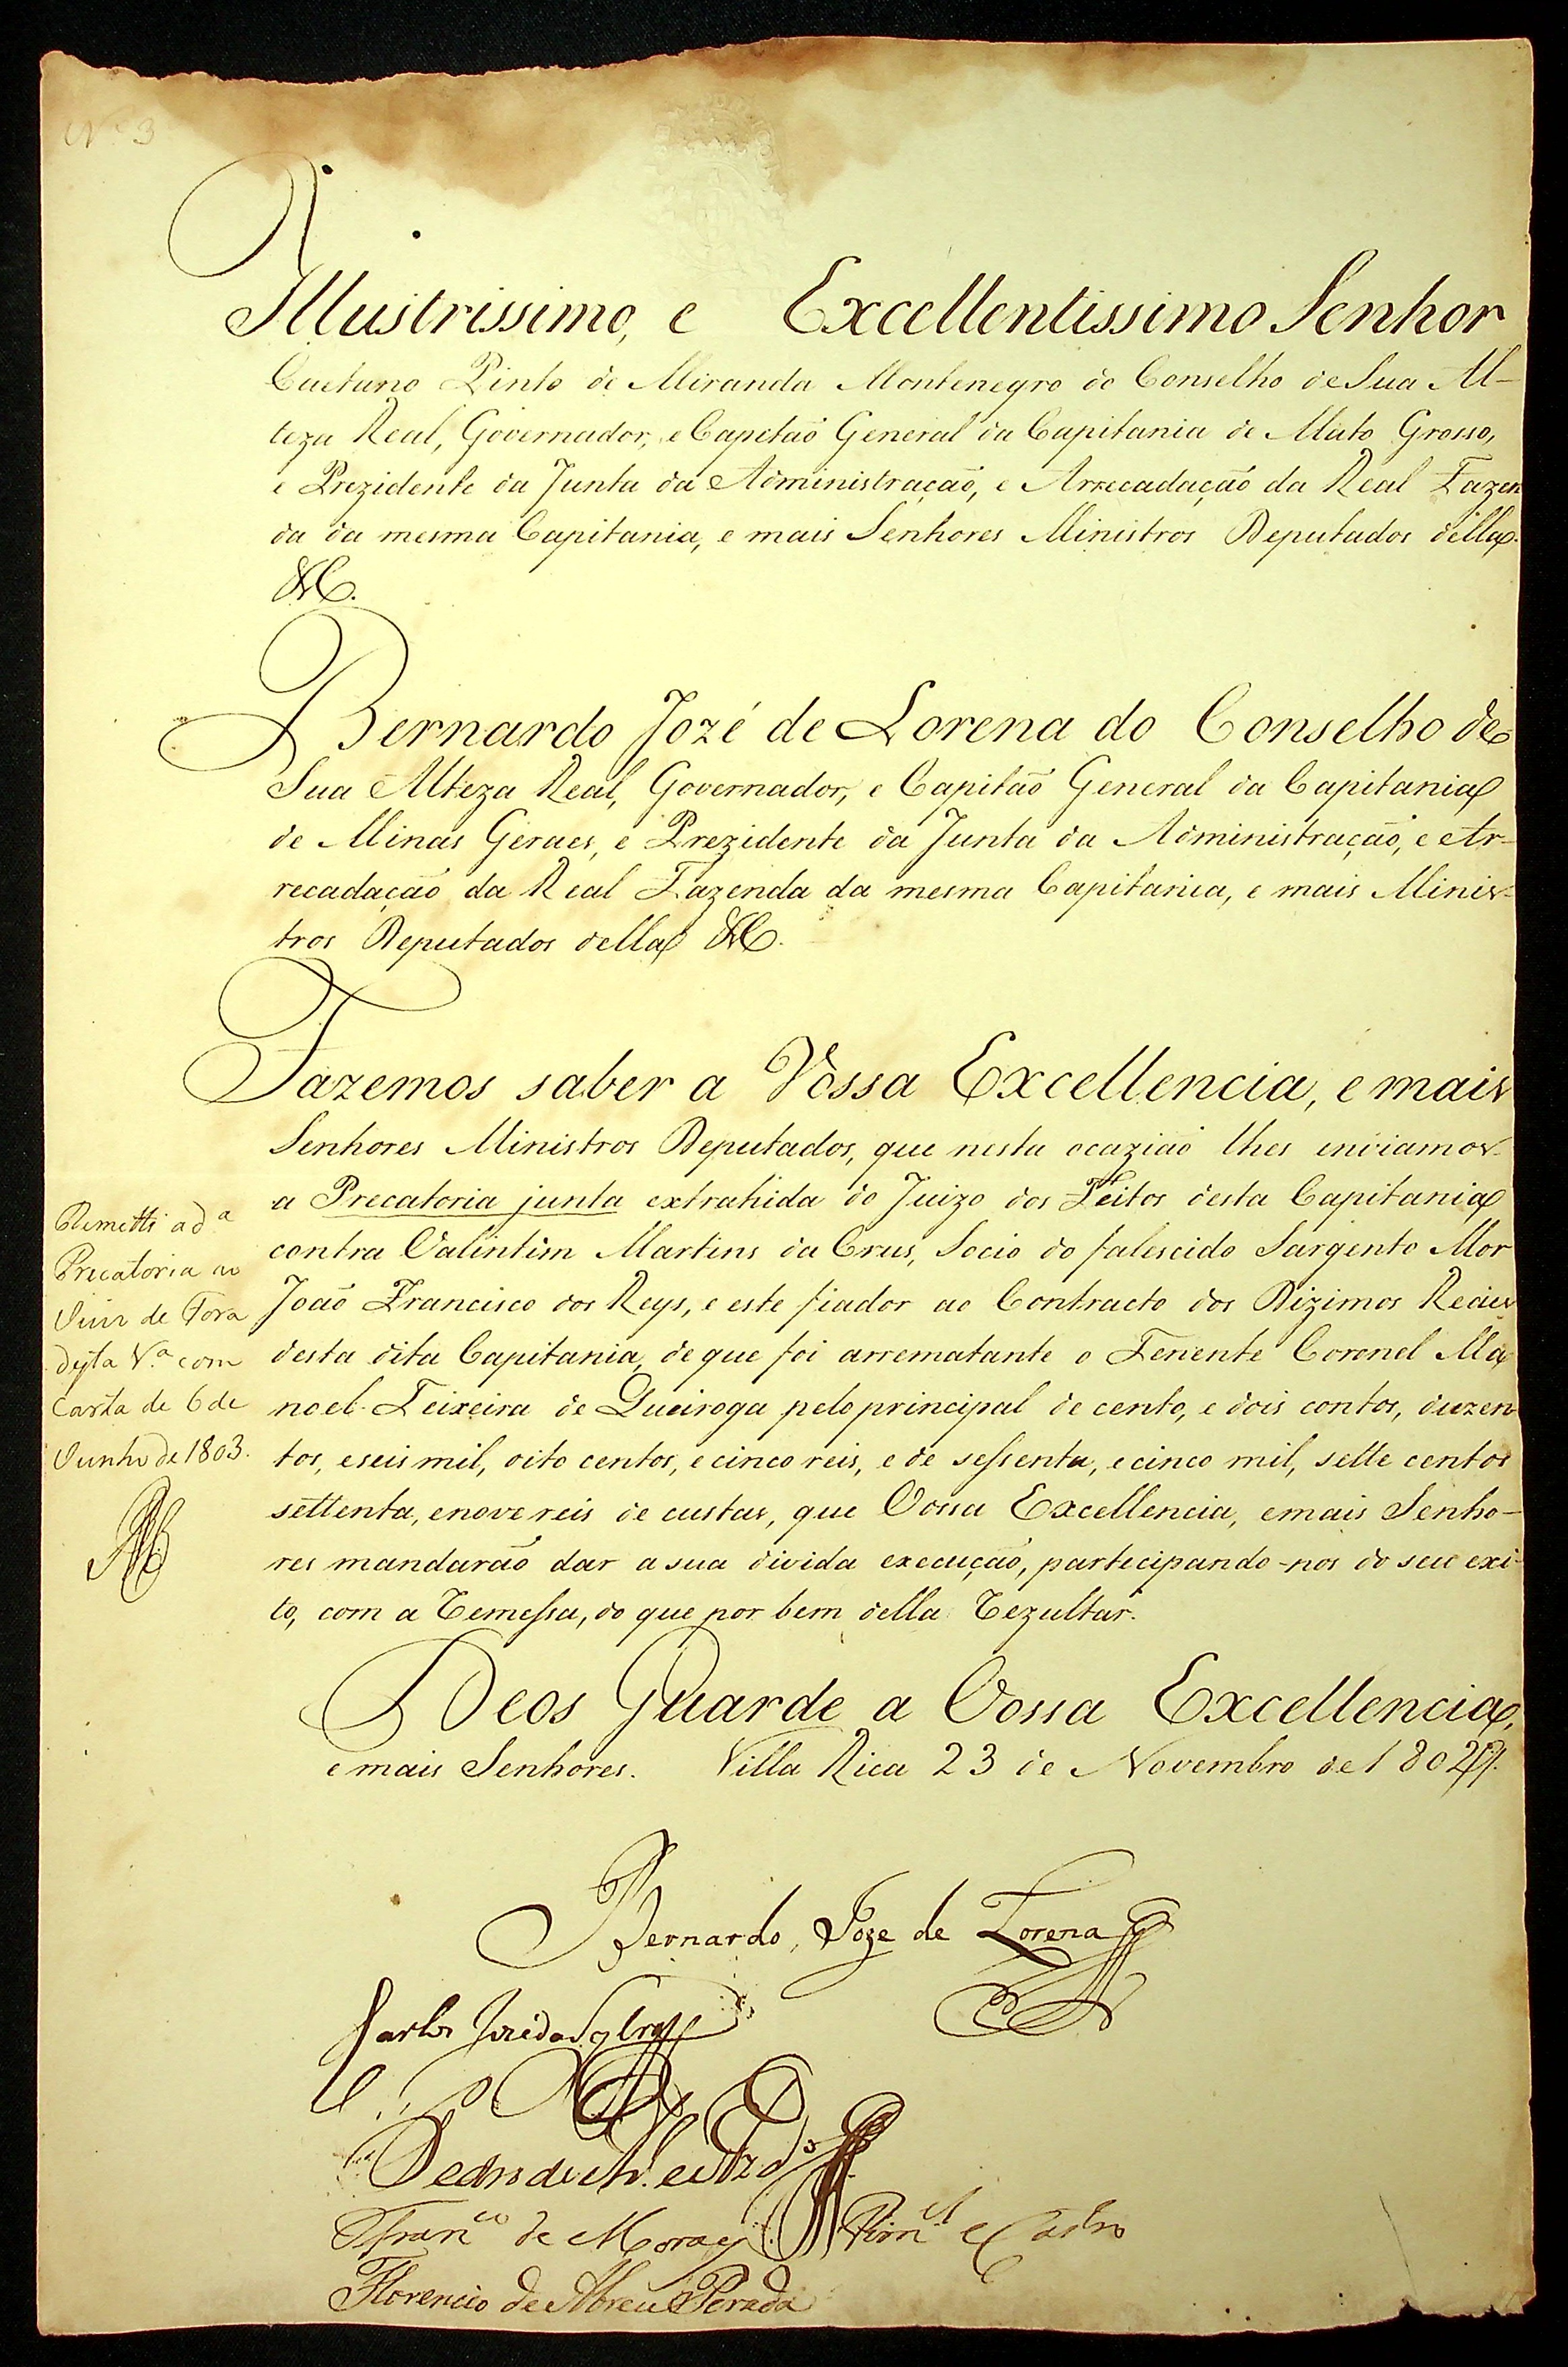 Nº 3
Illustrissimo, e Excellentissimo Senhor
Caetano Pinto de Miranda Montenegro do Conselho de Sua Al-
teza Real, Governador, e Capitaõ General da Capitania de Mato Grosso,
e Prezidente da Junta da Administraçaõ, e Arrecadaçaõ da Real Fazen
da da mesma Capitania, e mais Senhores Ministros Deputados della.
&C.
Bernardo Jozé de Lorena do Conselho de
Sua Alteza Real, Governador, e Capitaõ General da Capitania
de Minas Geraes, e Prezidente da Junta da Administraçaõ, e Ar-
recadaçaõ da Real Fazenda da mesma Capitania, e mais Minis-
tros Deputados della &C.
Fazemos saber a Vossa Excellencia, e mais
Senhores Ministros Deputados, que nesta ocaziaõ lhes enviamos
a Precatoria junta extrahida do Juizo dos Feitos desta Capitania
contra Valintim Martins da Crus, Socio do falescido Sargento Mor
Joaõ Francisco dos Reys, e este fiador ao Contracto dos Dizimos Reaes
desta dita Capitania, de que foi arrematante o Tenente Coronel Ma
noel Teixeira de Queiroga pelo principal de cento, e dois contos, duzen
tos, e seis mil, oito centos, e cinco reis, e de sessenta, e cinco mil, sette centos
settenta, e nove reis de custas, que Vossa Excellencia, e mais Senho-
res mandaraõ dar a sua divida execuçaõ, partecipando-nos do seu exi-
to, com a Remessa, do que por bem della Rezultar.
Deos Guarde a Vossa Excellencia,
e mais Senhores. Villa Rica 23 de Novembro de 1802
Remetti a dª
Precatoria ao
Juiz de Fora
desta Vª com
Carta de 6 de
Junho de 1803.
Bernardo Joze de Lorena
Carlos Joze da Sylva
Franco de Moraes Pimel e Castro
Florencio de Abreu Perada